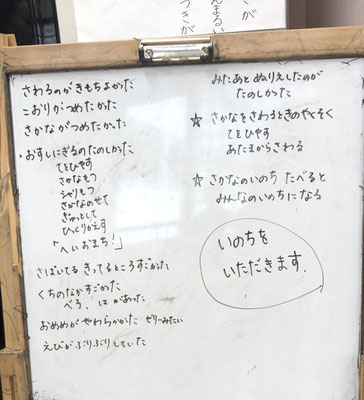 が
んまるい
つきが
さわるのがきもちよかった
こおりがつめたかった
さかながつめたかった
・おすしにぎるのたのしかった
てをひやす
さかなもつ
シャリもつ
さかなのせて
ぎゅっとして
ひっくりかえす
「へいおまち!」
さばいてる きってるところすごかった
くちのなかすごかった
べろ、はがあった
おめめがやわらかかった ゼリーみたい
えびがぷりぷりしていた
みたあとぬりえしたのが
たのしかった
☆ さかなをさわるときのやくそく
てをひやす
あたまからさわる
☆ さかなのいのち たべると
みんなのいのちになる
いのちを
いただきます。